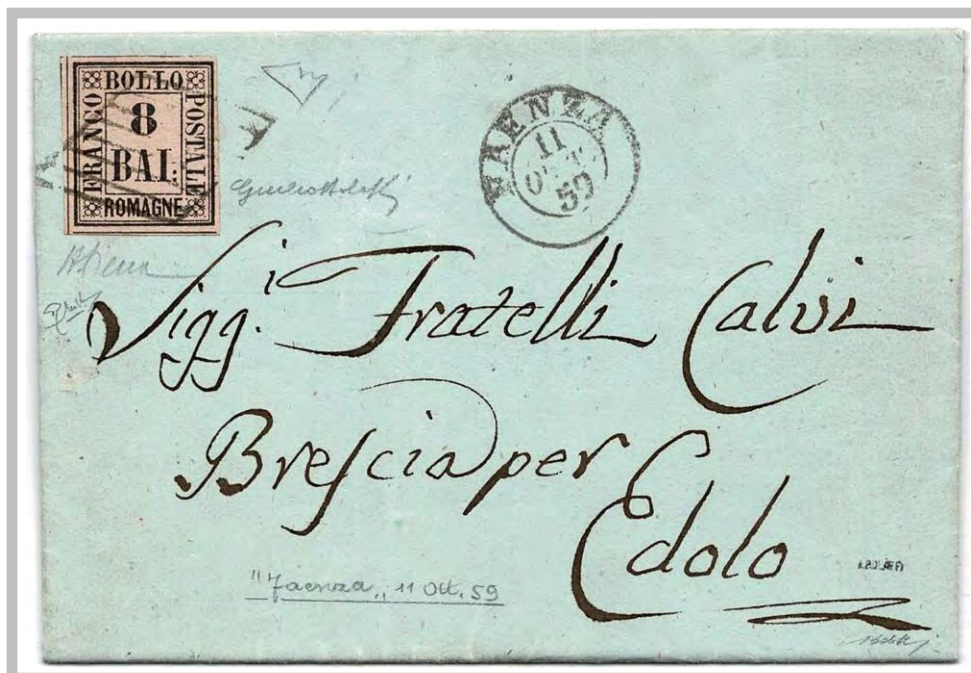 BOLLO
FRANCO
8
BAI:
POSTALE
ROMAGNE
FAENZA
11
59
Sigg.i Fratelli Calvi
Brescia per
Edolo
"Faenza" 11 Ott. 59